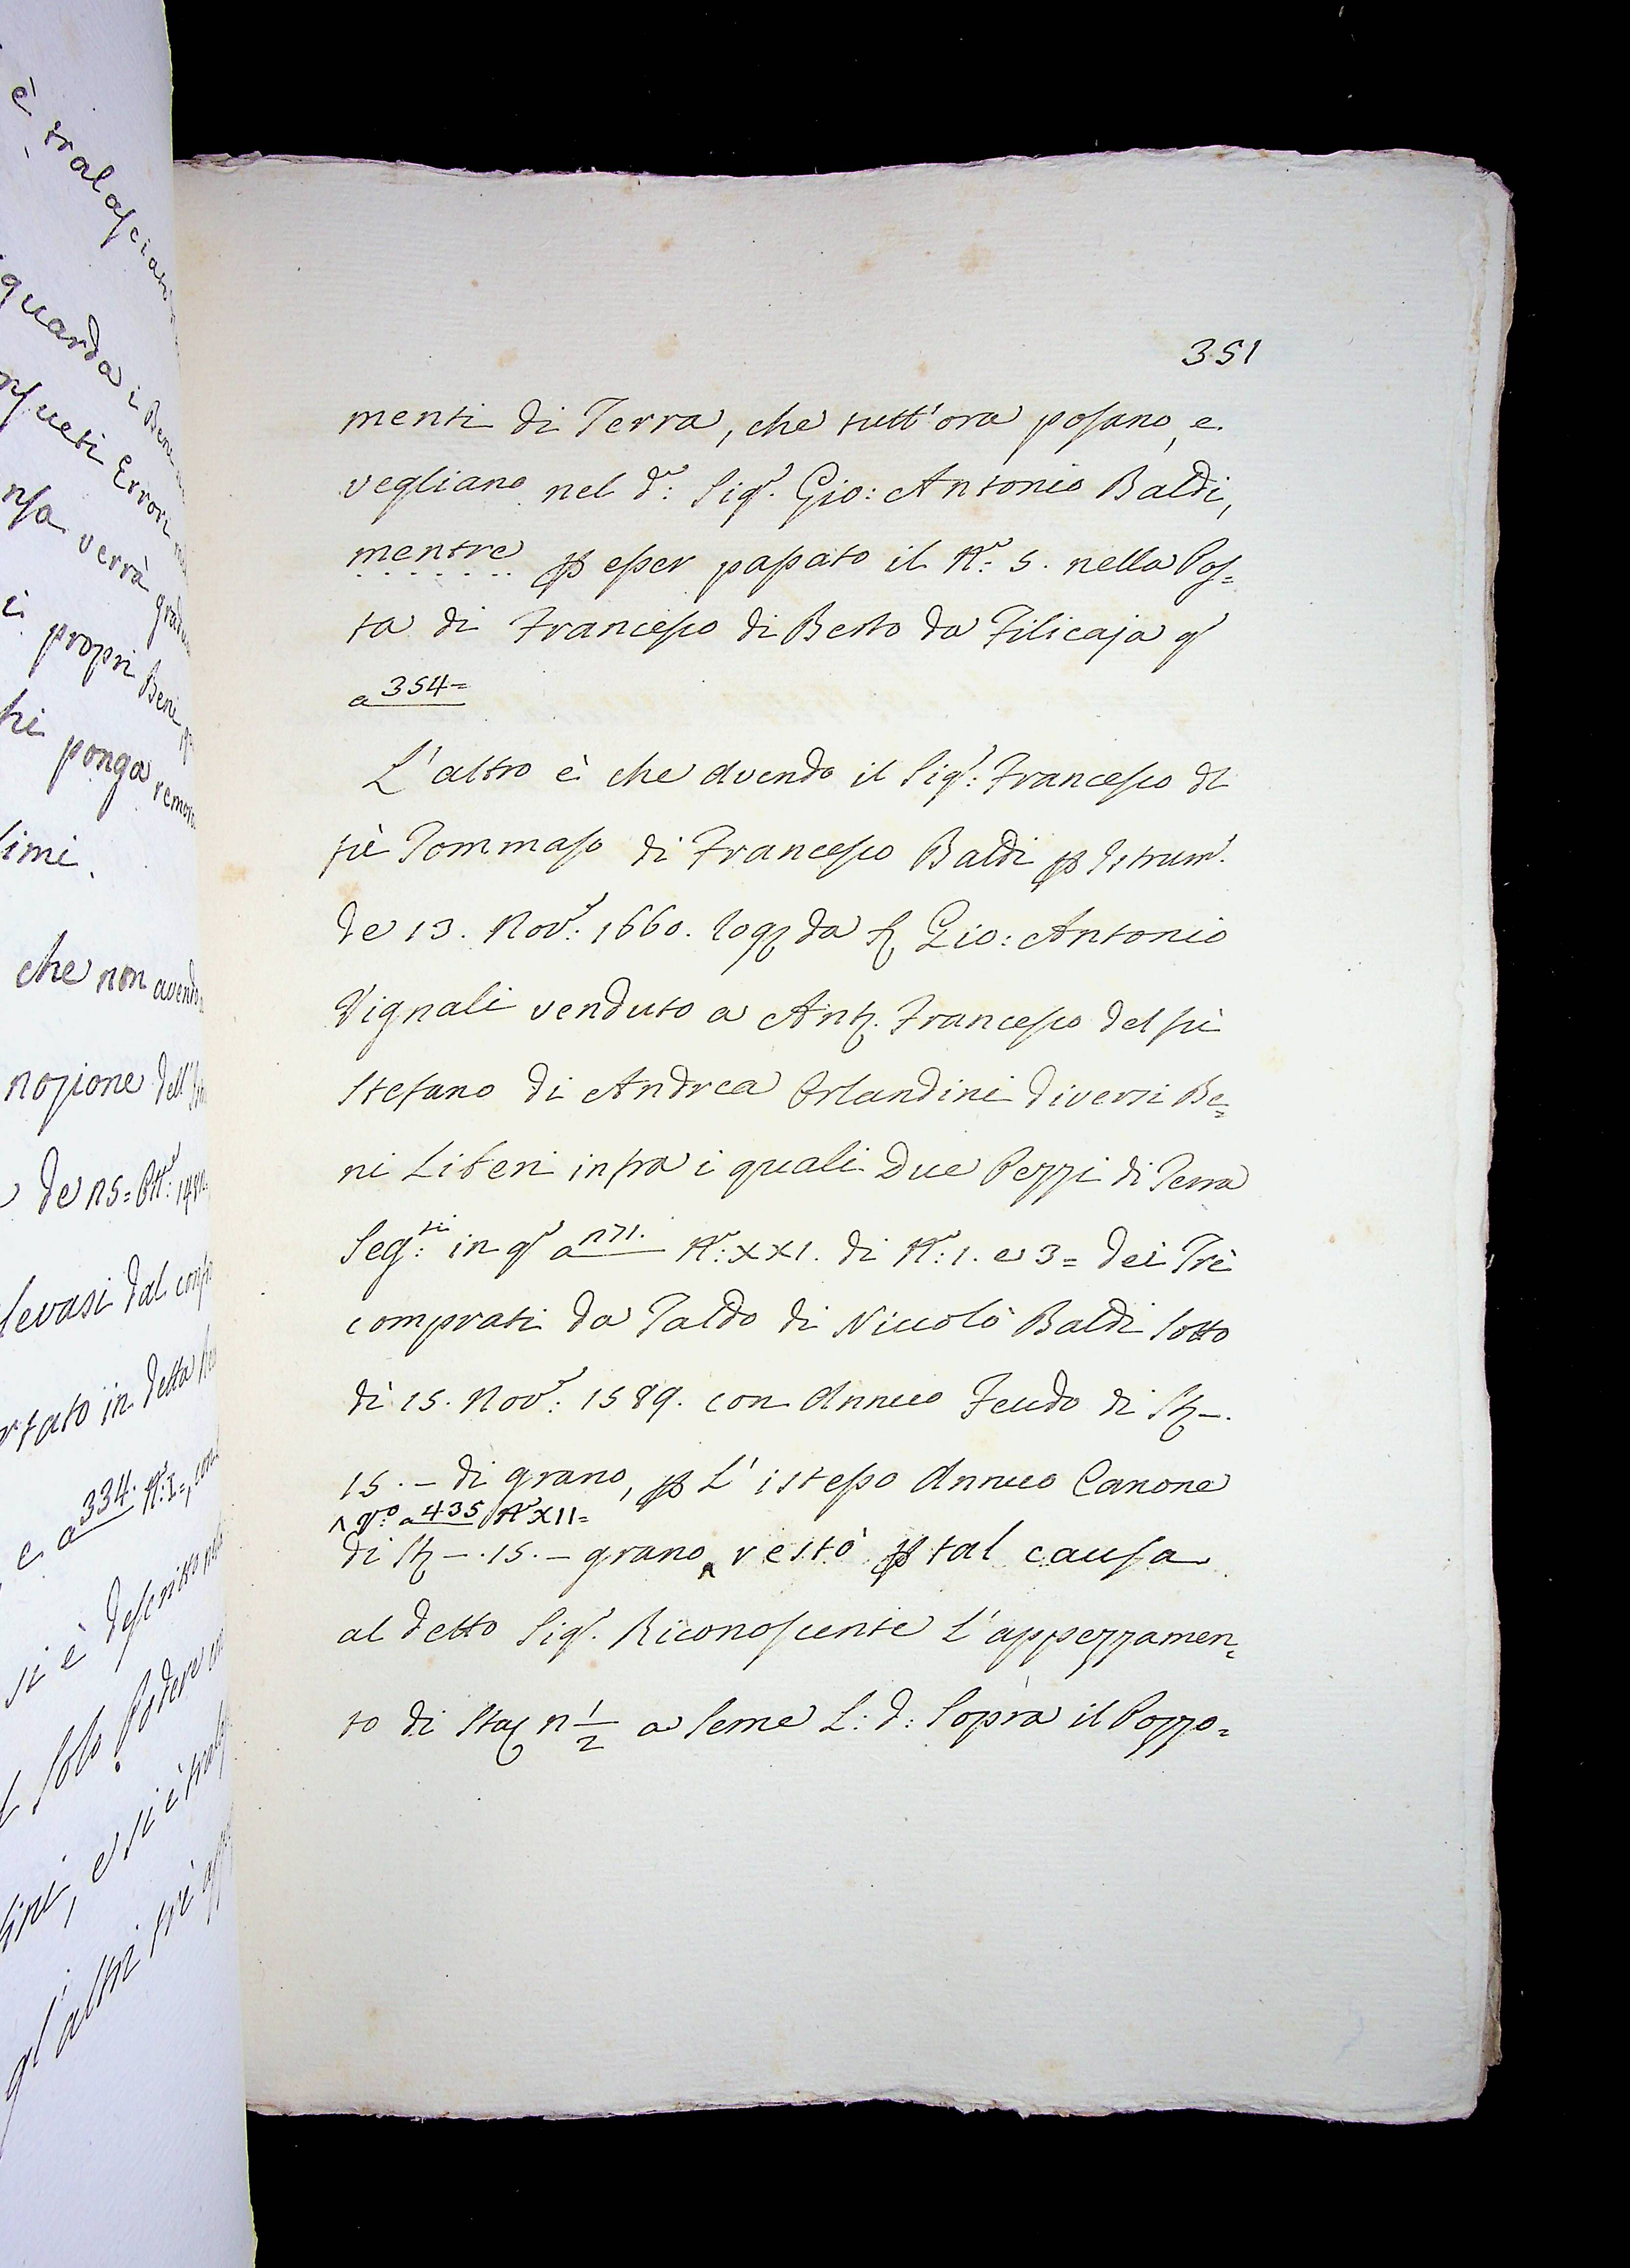 è tralasciato
guarda i Beni
nsueti Errori
nsa verrà
i propri Beni
hi ponga remora
simi.
che non avendo
nozione dell'
de 25= Ott.e: 14
levasi dal
rtato in detta
e a 334. N.o: I=, con
si è descritto
Solo Podere
ini, e si è
gl'altri trè
351
menti di Terra, che tutt'ora posano, e
vegliano nel d.o: Sig.r. Gio: Antonio Baldi,
mentre p esser passato il N.o: 5. nella Pos=
ta di Francesco di Berto da Filicaja q.o
a 354=
L'altro è che avendo il Sig.r: Francesco di
fù Tommaso di Francesco Baldi p Istrum.
de 13. Nov.e: 1660. rog. da S. Gio: Antonio
Vignali venduto a Ant. Francesco del fù
Stefano di Andrea Orlandini diversi Be=
ni Liberi infra i quali Due Pezzi di Terra
Seg.ti: in q.o a 271. N.o: XXI. di N.o: 1. e 3= dei Trè
comprati da Taldo di Niccolò Baldi sotto
dì 15. Nov.e: 1589. con Annuo Feudo di St. –.
15. – di grano, p L'istesso Annuo Canone
^ q.o: a 435 N.o XII=
di St. –. 15. – grano ^ restò p tal causa
al detto Sig.r. Riconoscente l'appezzamen=
to di Sta. 2 1/2 a Seme L: d: Sopra il Pozzo=